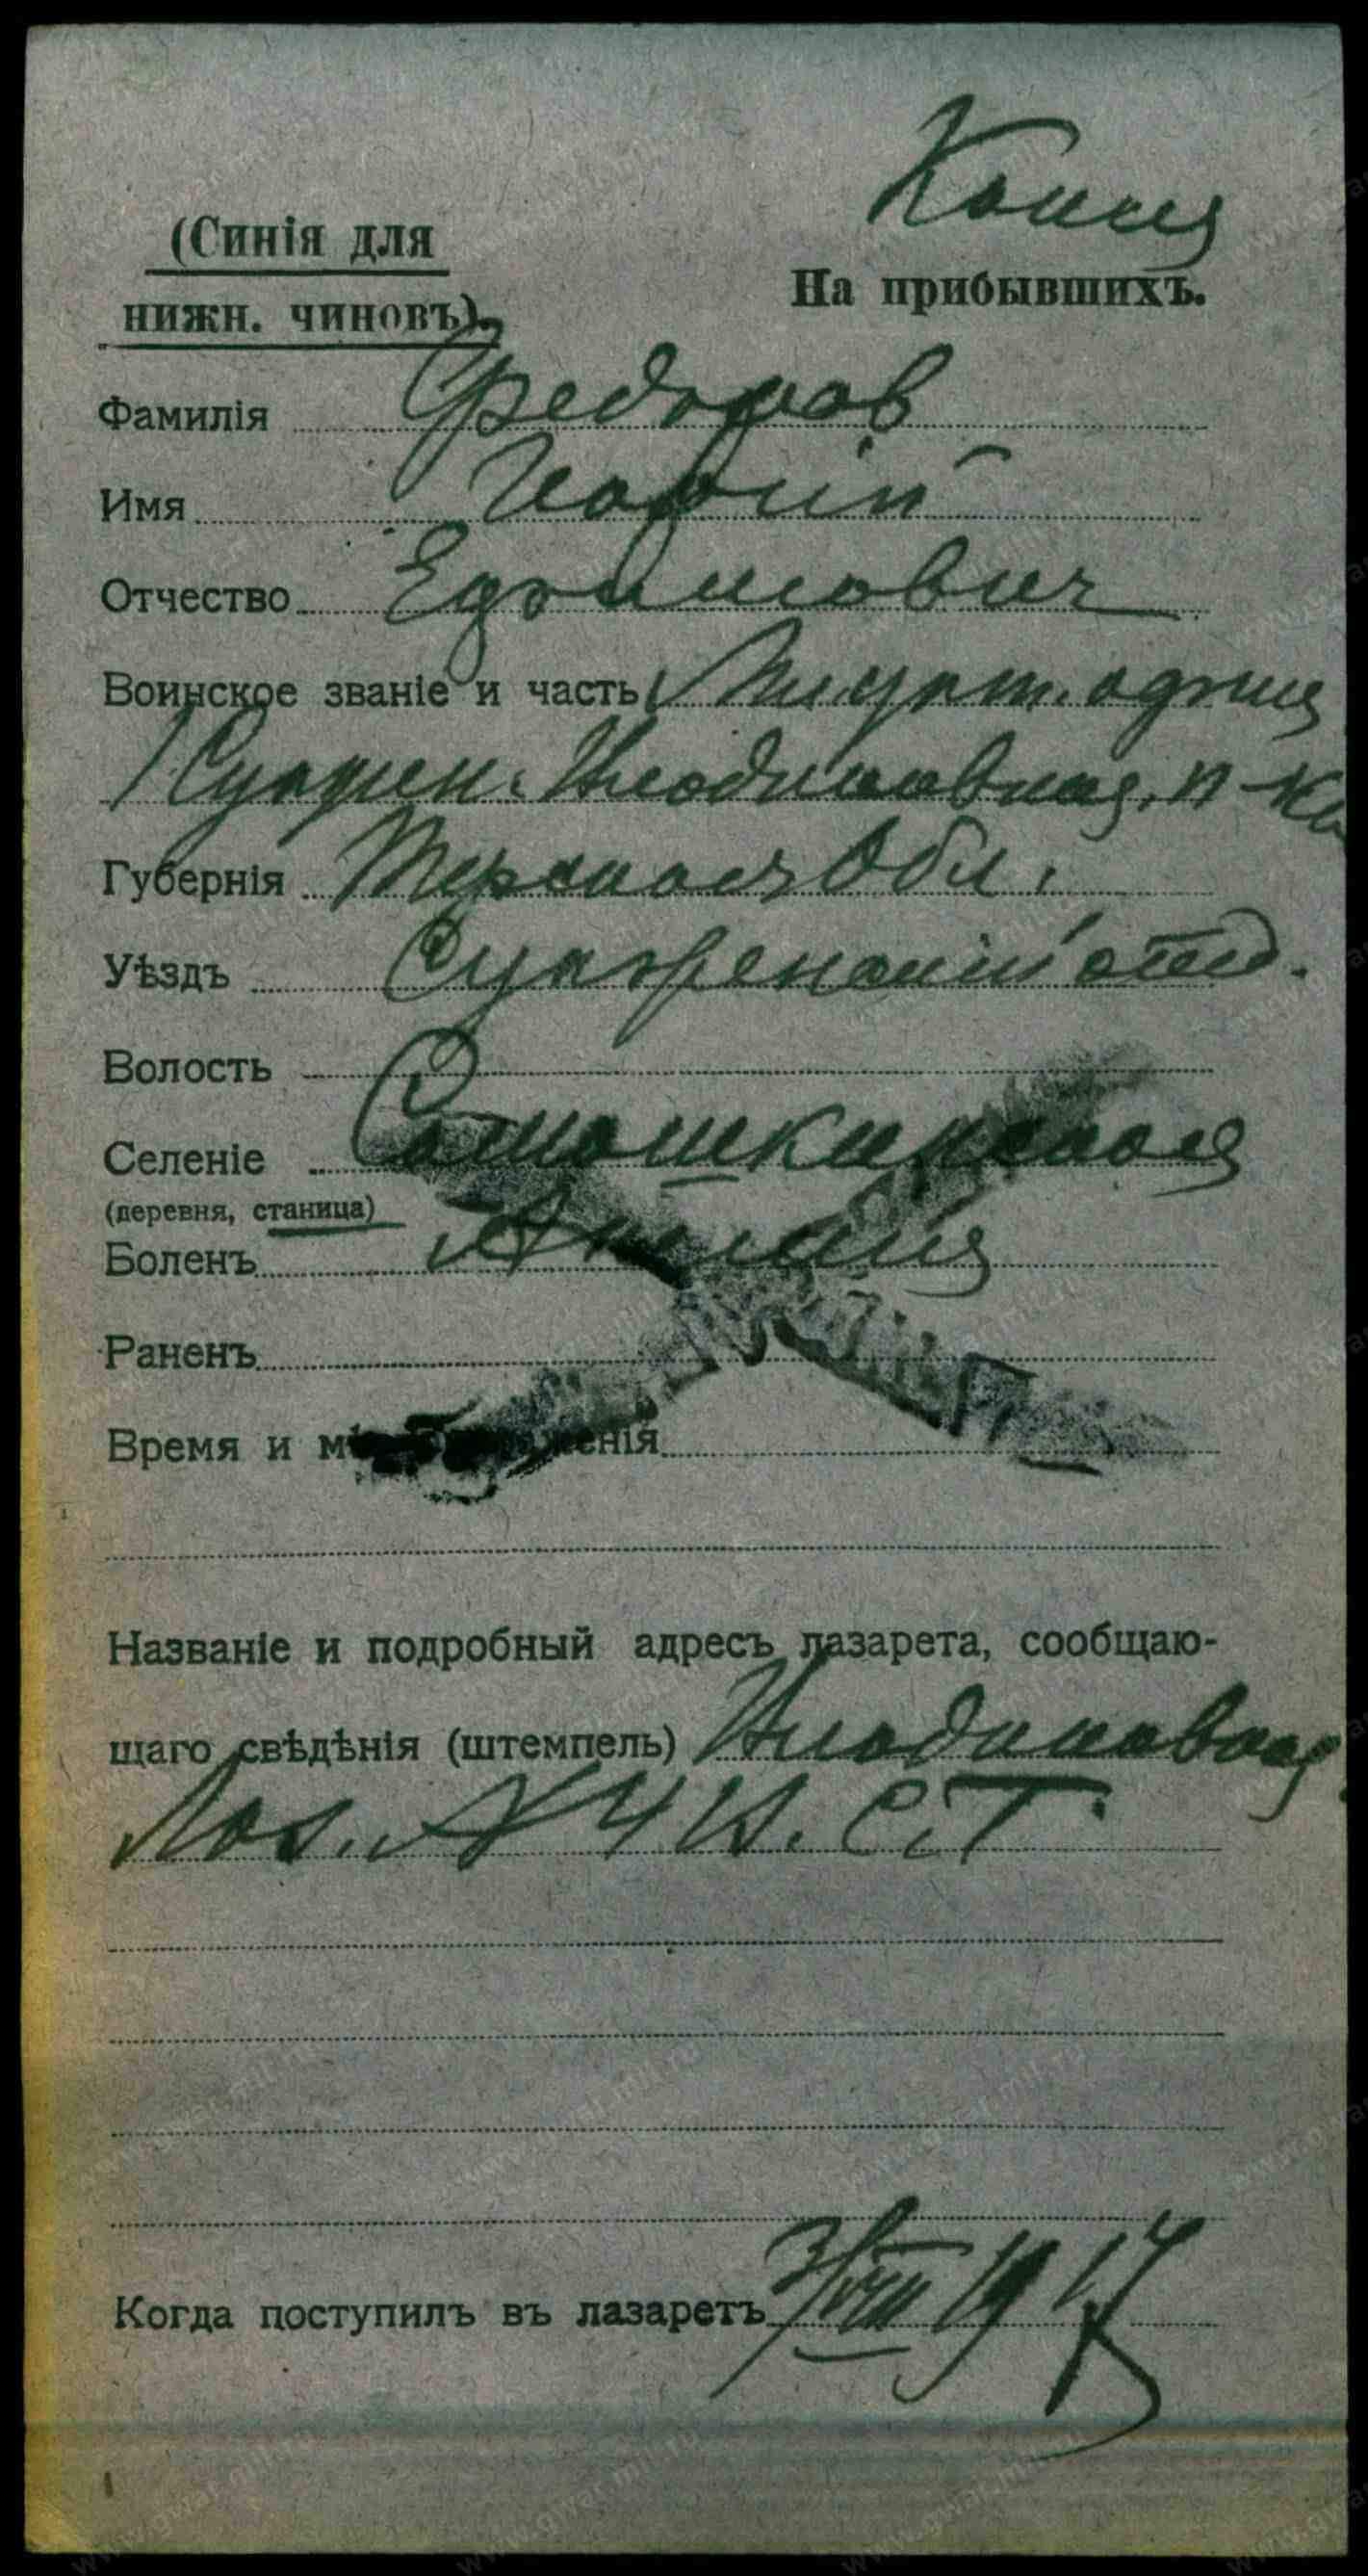 Копія
(Синія для
На прибывшихъ.
нижн. чиновъ).
Фамилія Федоров
Имя
Отчество
Воинское званіе и часть
1 Сунжен. Владикавказ. п-ка
Губернія Терская Обл.
Уѣздъ Сунженскій отд.
Волость
Селеніе Самашкинской
(деревня, станица)
Боленъ
Раненъ
Время и м
женія
Названіе и подробный адресъ лазарета, сообщаю-
щаго свѣдѣнія (штемпель) Владикавказ
Лаз. № 4 В. С. Г.
Когда поступилъ въ лазаретъ 3/VIII 1917